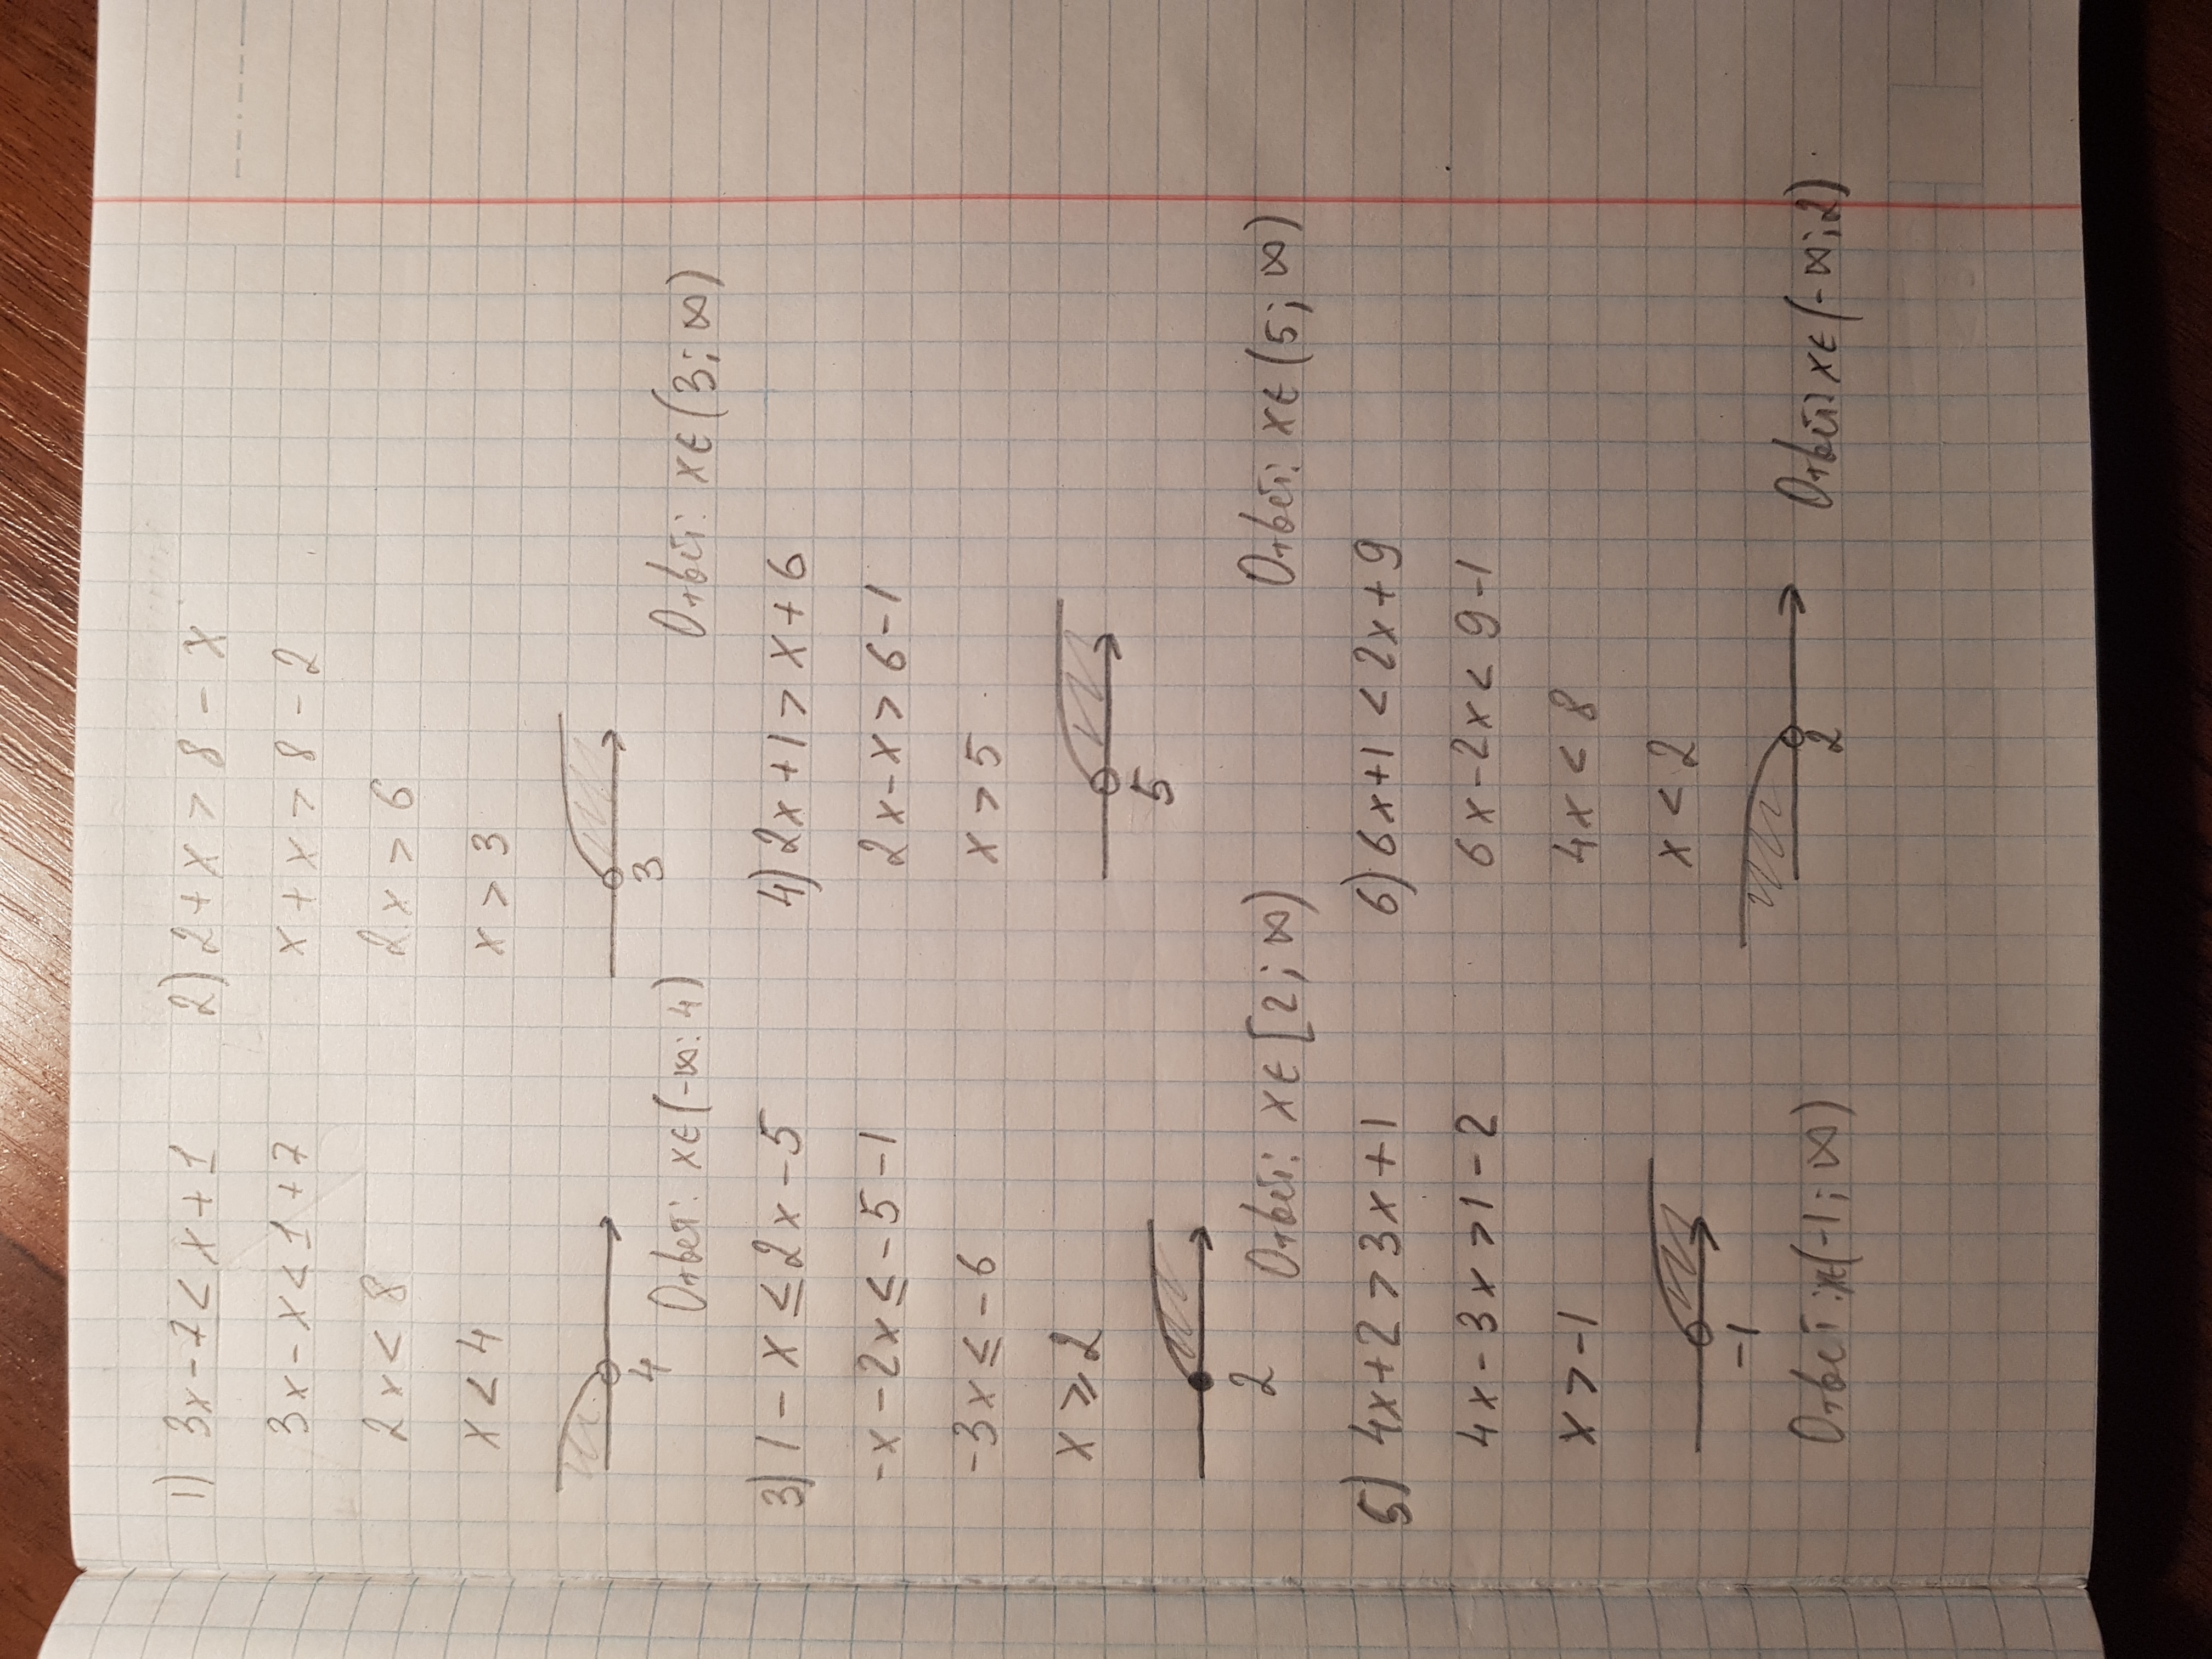 1) 3x-7<x+1
3x-x<1+7
2x<8
x<4
4
Ответ: x∈(-∞; 4)
2) 2+x>8-x
x+x>8-2
2x>6
x>3
3
Ответ: x∈(3; ∞)
3) 1-x≤2x-5
-x-2x≤-5-1
-3x≤-6
x≥2
2
Ответ: x∈[2; ∞)
4) 2x+1>x+6
2x-x>6-1
x>5
5
Ответ: x∈(5; ∞)
5) 4x+2>3x+1
4x-3x>1-2
x>-1
-1
Ответ: x∈(-1; ∞)
6) 6x+1<2x+9
6x-2x<9-1
4x<8
x<2
2
Ответ: x∈(-∞; 2)